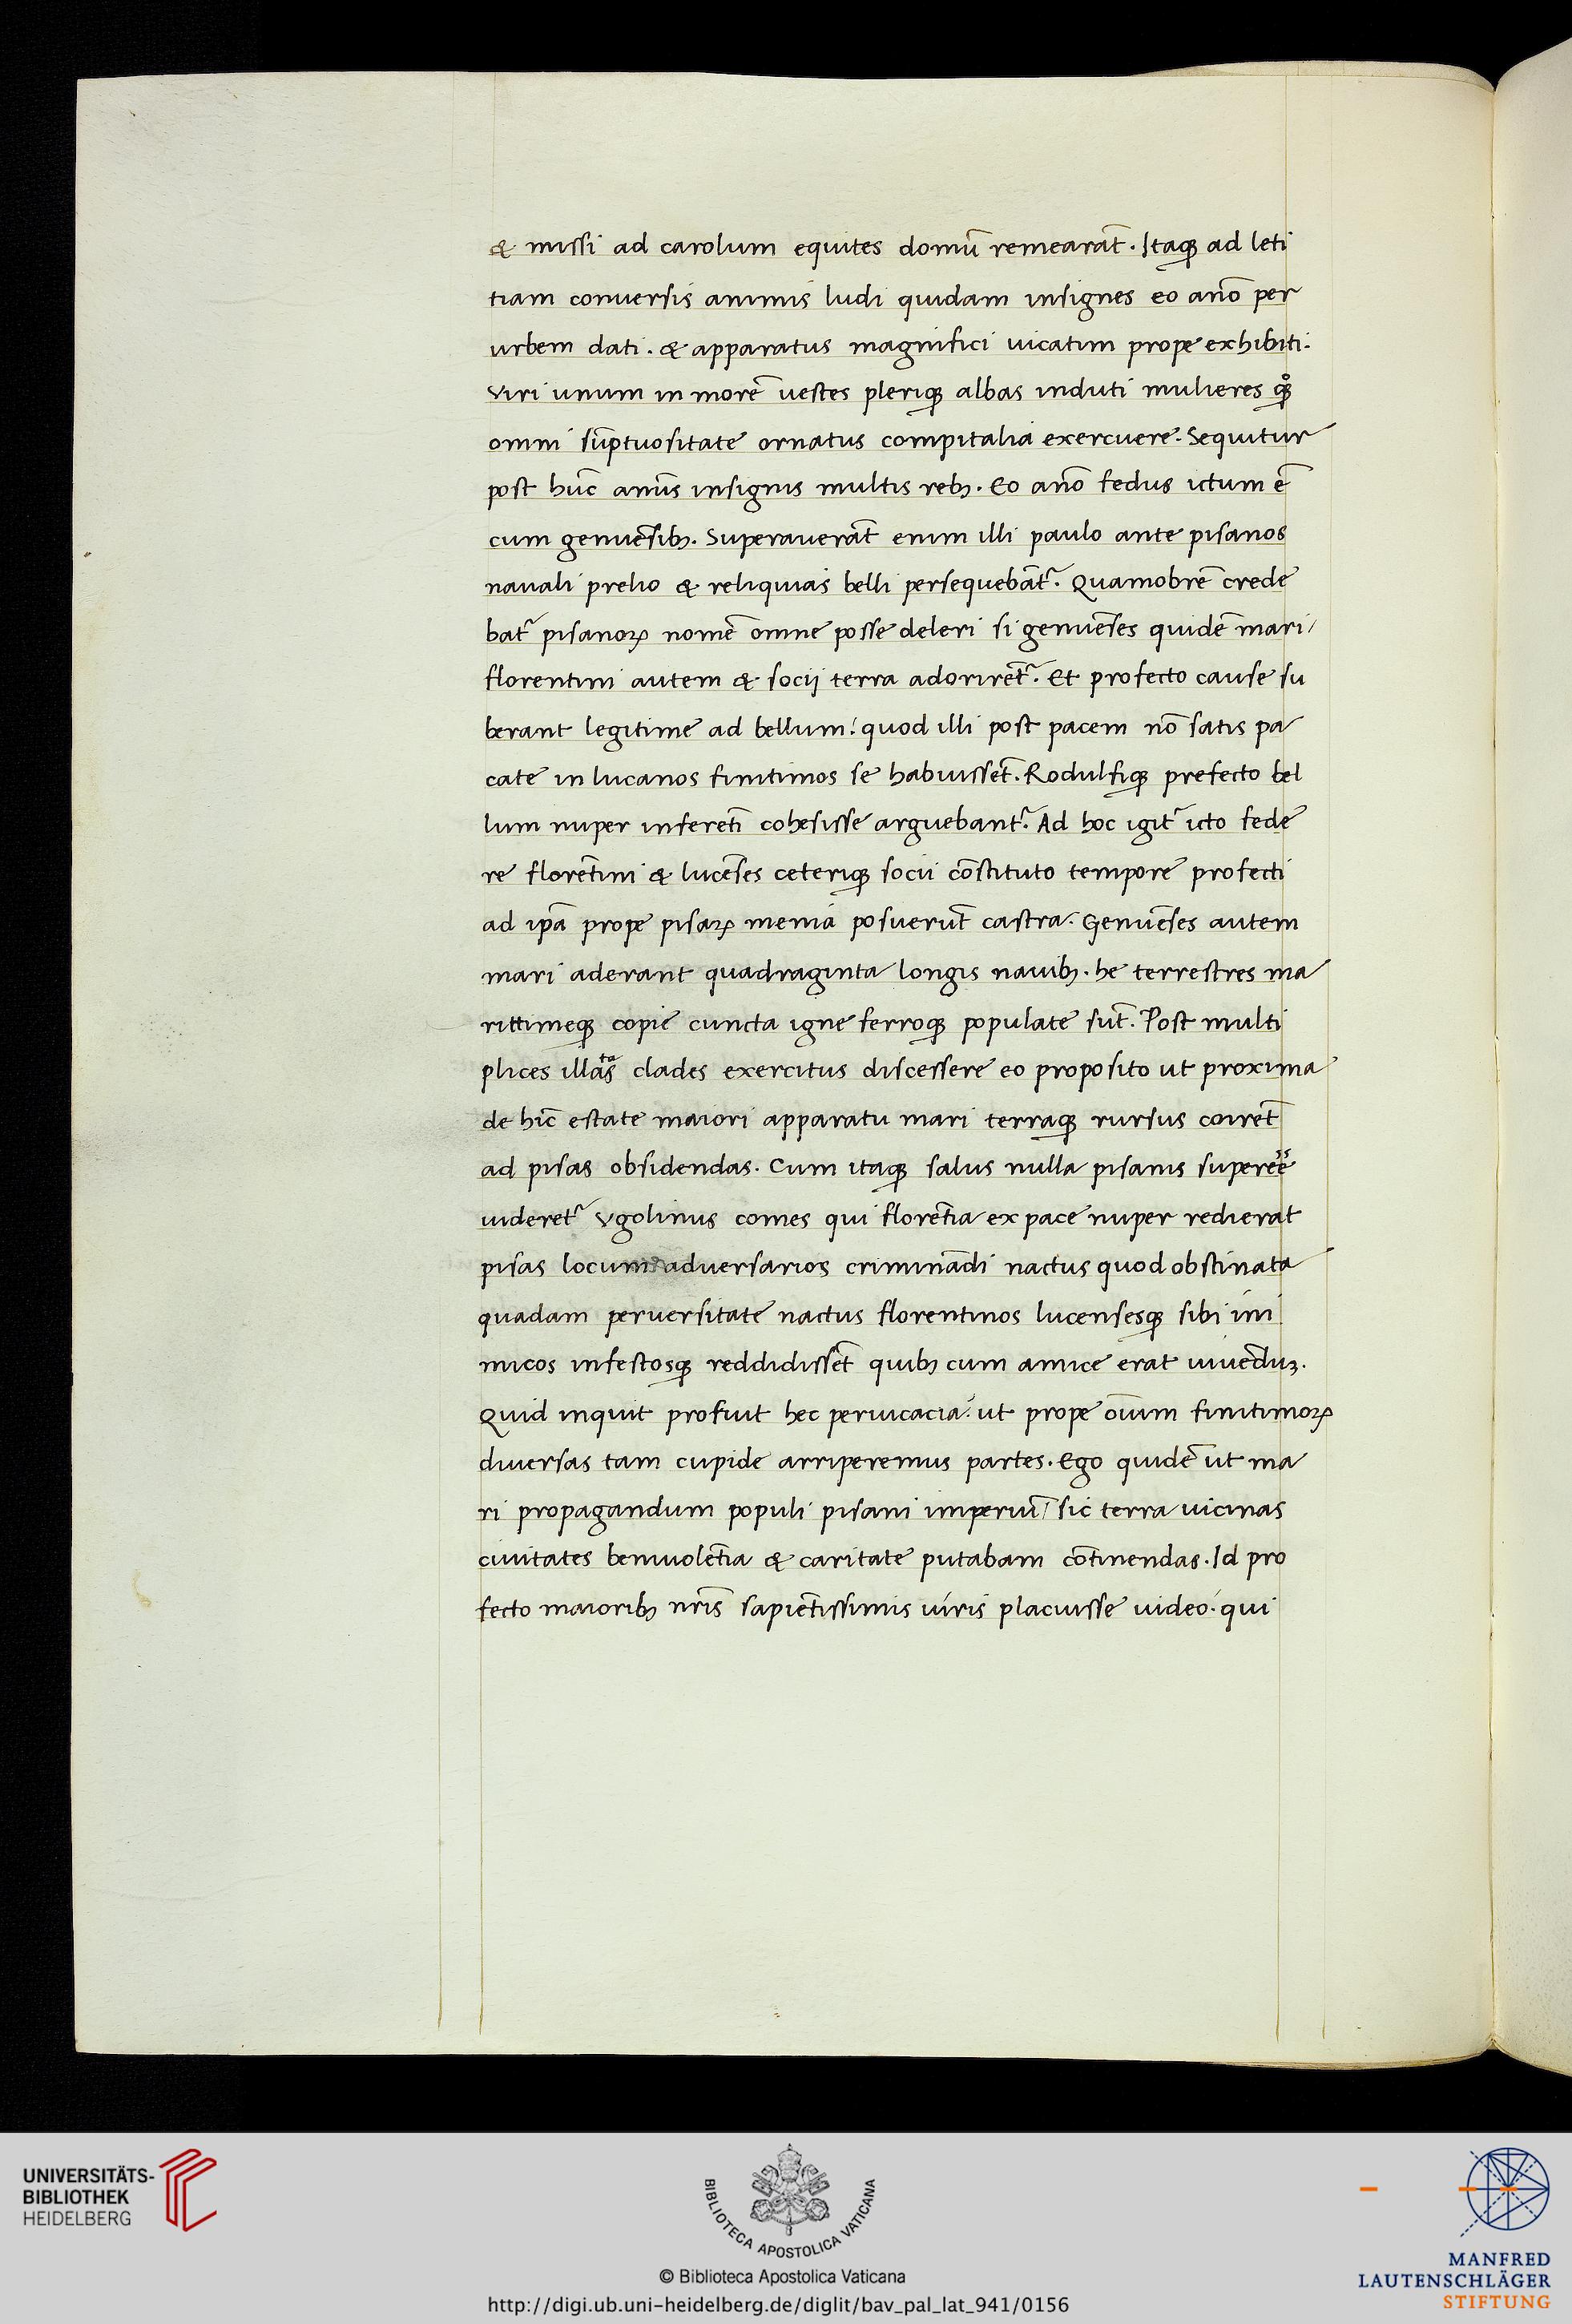 & missi ad carolum equites domū remearāt. Itaqꝫ ad leti
tiam conuersis animis ludi quidam insignes eo an̄o per
urbem dati. & apparatus magnifici uicatim prope exhibiti.
Viri unum in morē uestes pleriqꝫ albas induti mulieres qͦꝫ
omni sūptuositate ornatus compitalia exercuere. Sequitur
post hūc anūs insignis multis rebꝫ. Eo an̄o fedus ictum ē
cum genuēsibꝫ. Superauerāt enim illi paulo ante pisanos
nauali prelio & reliquias belli persequebāt᷑. Quamobrē crede
bat᷑ pisanoꝝ nomē omne posse deleri si genuēses quidē mari/
florentini autem & socij terra adorirēt᷑. Et profecto cause su
berant legitime ad bellum: quod illi post pacem nō satis pa
cate in lucanos finitimos se habuissēt. Rodulfiqꝫ prefecto bel
lum nuper inferēti cohesisse arguebant᷑. Ad hoc igit᷑ icto fede
re florētini & lucēses ceteriqꝫ socii cōstituto tempore profecti
ad ip̄a prope pisaꝝ menia posuerūt castra. Genuēses autem
mari aderant quadraginta longis nauibꝫ. he terrestres ma
rittimeqꝫ copie cuncta igne ferroqꝫ populate sūt. Post multi
plices illatas clades exercitus discessere eo proposito ut proxima
de hīc estate maiori apparatu mari terraqꝫ rursus coirēt
ad pisas obsidendas. Cum itaqꝫ salus nulla pisanis superēē
uideret᷑ Vgolinus comes qui florētia ex pace nuper redierat
pisas locum adversarios criminādi nactus quod obstinata
quadam peruersitate nactus florentinos lucensesqꝫ sibi ini
micos infestosqꝫ reddidissēt quibꝫ cum amice erat uiuēduꝫ.
Quid inquit profuit hec peruicacia: ut prope oīum finitimoꝝ
diuersas tam cupide arriperemus partes. Ego quidē ut ma
ri propagandum populi pisani imperiū/ sic terra uicinas
ciuitates beniuolētia & caritate putabam cōtinendas. Id pro
fecto maioribꝫ nr̄is sapiētissimis uiris placuisse uideo: qui
UNIVERSITÄTS-
BIBLIOTHEK
HEIDELBERG
BIBLIOTECA APOSTOLICA VATICANA
© Biblioteca Apostolica Vaticana
http://digi.ub.uni-heidelberg.de/diglit/bav_pal_lat_941/0156
MANFRED
LAUTENSCHLÄGER
STIFTUNG